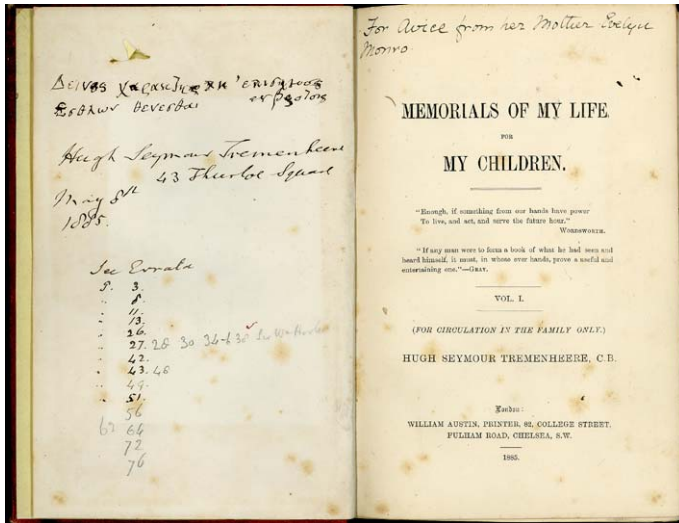 Δεινος χαρακτηρ κ'επισημος
εν βροτοις
Εσθλων γενεσθαι
Hugh Seymour Tremenheere
43 Thurloe Square
May 8th
1885.
See Errata
P. 3.
" 8.
" 11.
" 13.
" 26.
" 27. 28 30 34-6 38
" 42.
" 43. 46
" 49.
" 51.
56
62 64
72
76
For Avice from her Mother Evelyn
Monro
MEMORIALS OF MY LIFE,
FOR
MY CHILDREN.
"Enough, if something from our hands have power
To live, and act, and serve the future hour."
WORDSWORTH.
"If any man were to form a book of what he had seen and
heard himself, it must, in whose ever hands, prove a useful and
entertaining one."—GRAY.
VOL. I.
(FOR CIRCULATION IN THE FAMILY ONLY.)
HUGH SEYMOUR TREMENHEERE, C.B.
London:
WILLIAM AUSTIN, PRINTER, 82, COLLEGE STREET,
FULHAM ROAD, CHELSEA, S.W.
1885.